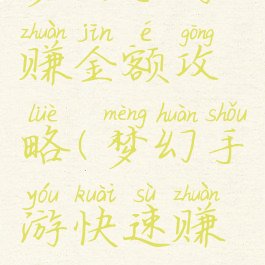 zhuàn jīn é gōng
赚金额攻
lüè mèng huàn shǒu
略(梦幻手
yóu kuài sù zhuàn
游快速赚